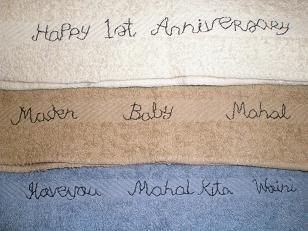 Happy 1st Anniversary
Master Baby Mahal
Iloveyou Mahal Kita Waini